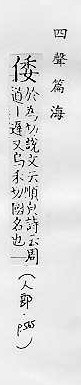 四聲篇海
倭
於為切說文云順皃詩云周
道一遲又烏禾切國名也
(人部・p585)